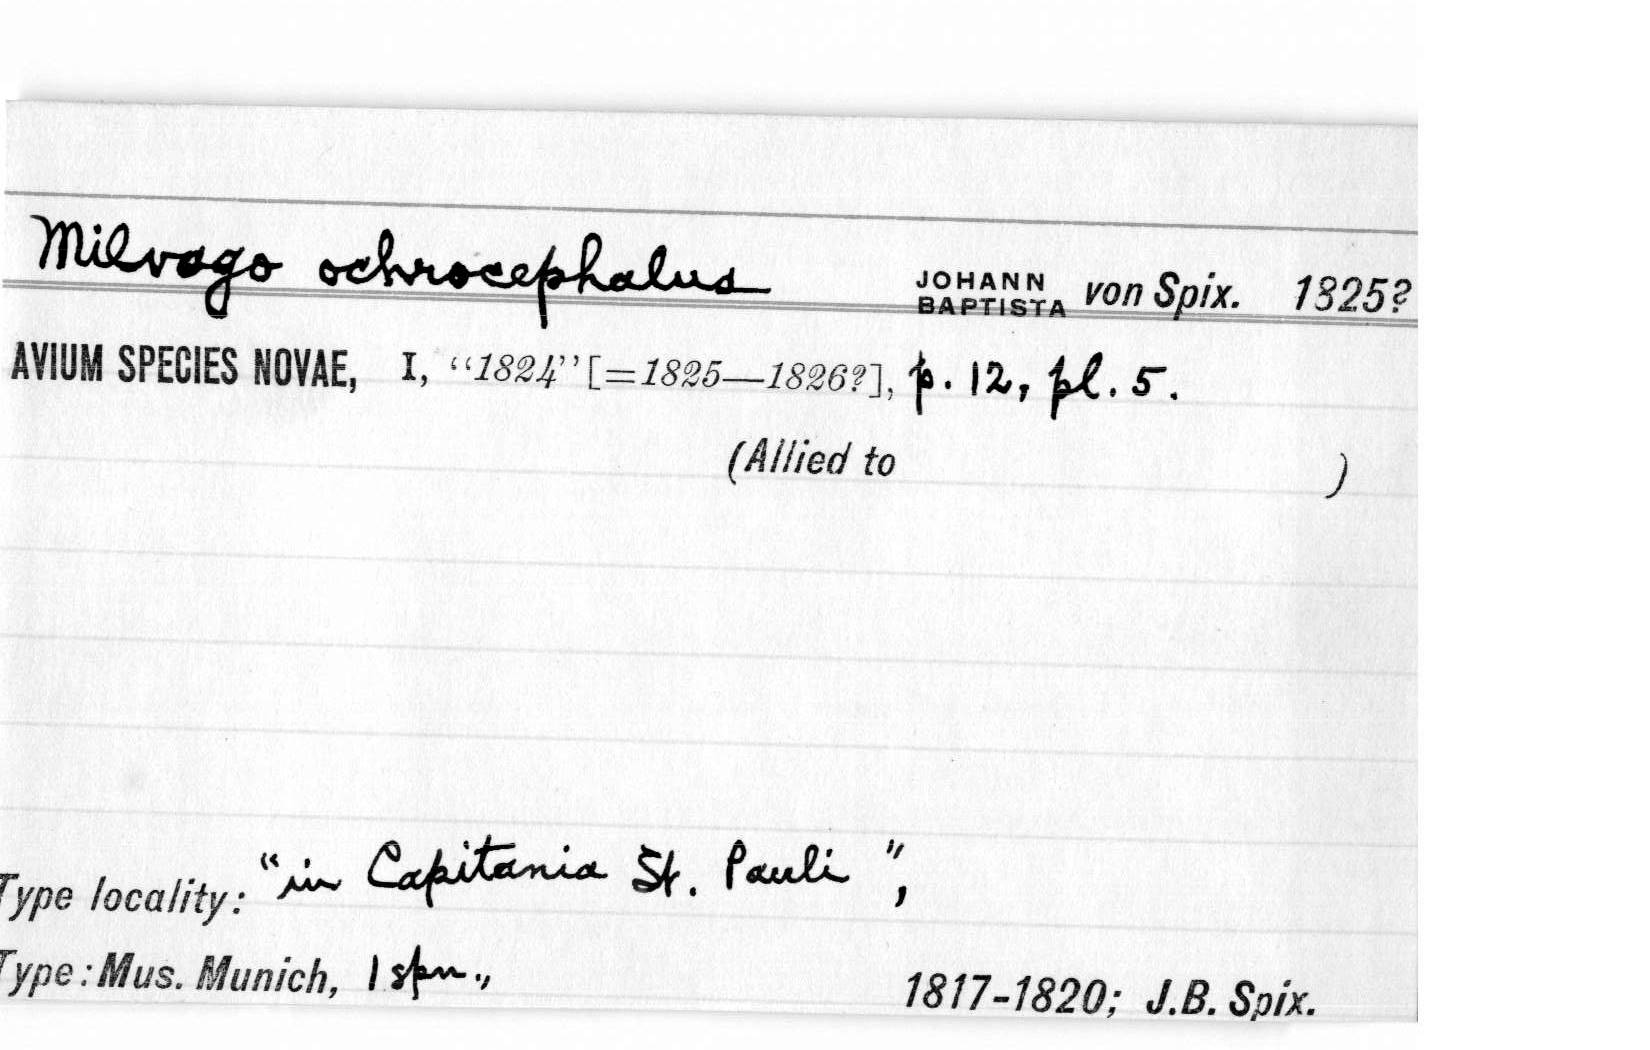 Milvago ochrocephalus JOHANN BAPTISTA von Spix. 1825?
AVIUM SPECIES NOVAE, I, “1824” [=1825—1826?], p. 12, pl. 5.
(Allied to )
Type locality: “in Capitania St. Pauli”,
Type: Mus. Munich, 1 spm., 1817-1820; J.B. Spix.